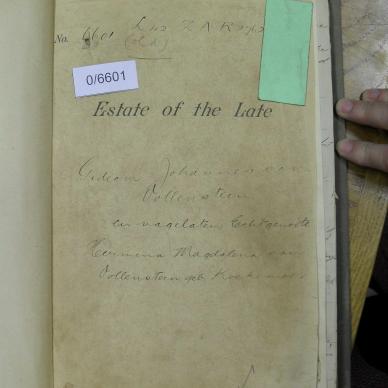 No. 6601
0/6601
Estate of the Late
Gideon Johannes van
Vollenstein
en nagelaten Echtgenoote
Hermina Magdalena van
Vollenstein geb